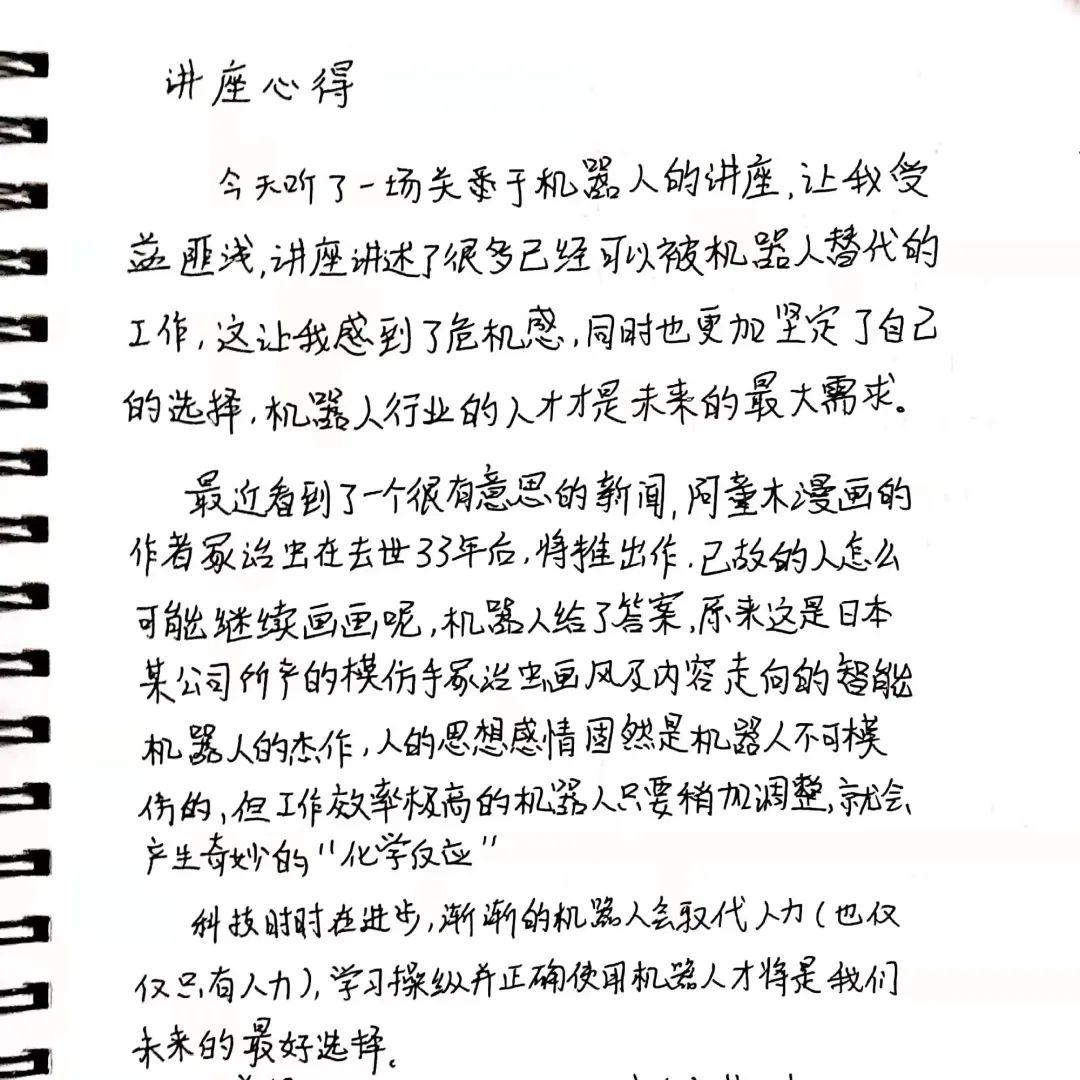 讲座心得
今天听了一场关于机器人的讲座,让我受
益匪浅,讲座讲述了很多已经可以被机器人替代的
工作,这让我感到了危机感,同时也更加坚定了自己
的选择,机器人行业的人才才是未来的最大需求。
最近看到了一个很有意思的新闻,阿童木漫画的
作者冢治虫在去世33年后,将推出作,已故的人怎么
可能继续画画呢,机器人给了答案,原来这是日本
某公司所产的模仿手冢治虫画风及内容走向的智能
机器人的杰作,人的思想感情固然是机器人不可模
仿的,但工作效率极高的机器人只要稍加调整,就会
产生奇妙的"化学反应"
科技时时在进步,渐渐的机器人会取代人力(也仅
仅只有人力),学习操纵并正确使用机器人才将是我们
未来的最好选择。